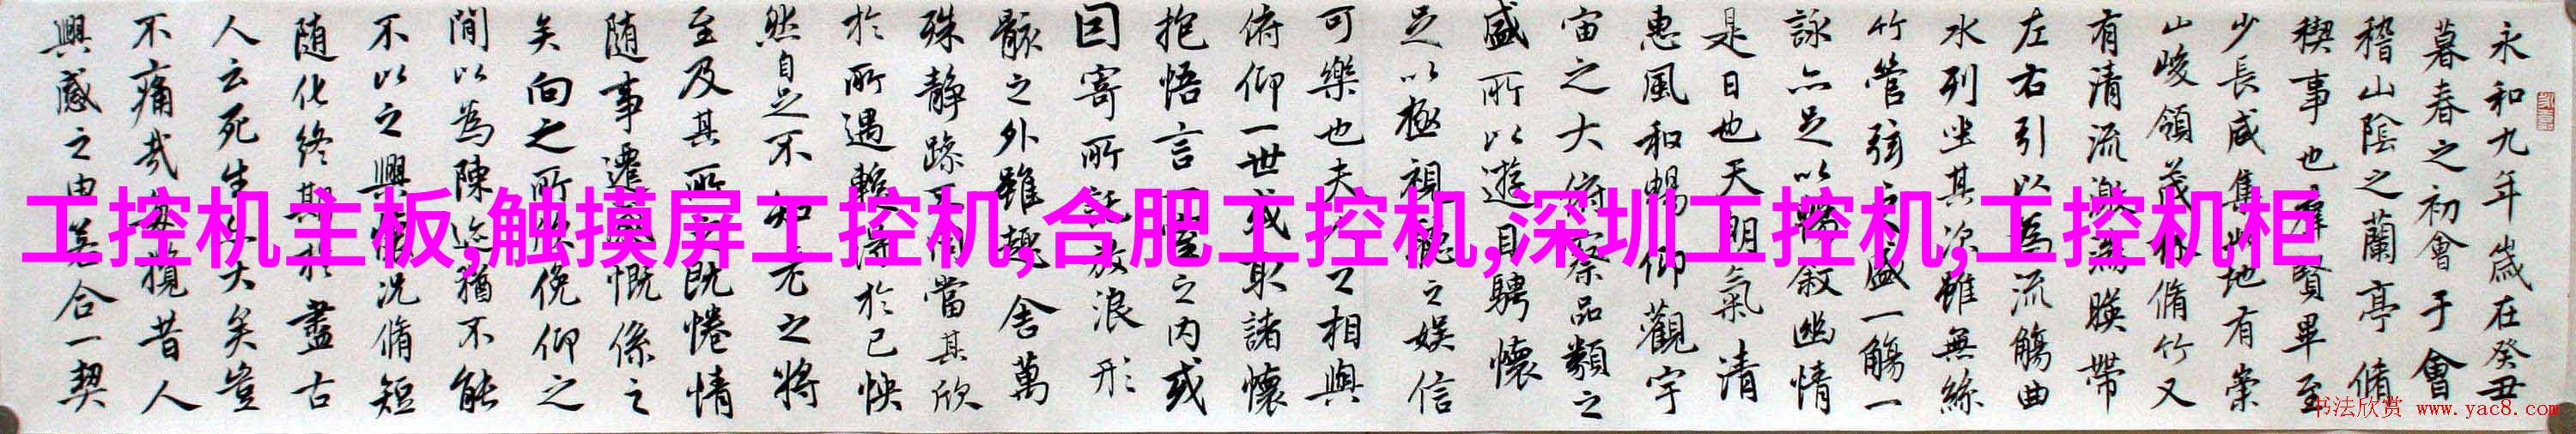 永和九年歲在癸丑
暮春之初會于會
稽山陰之蘭亭脩
稧事也羣賢畢至
少長咸集此地有崇
山峻領茂林脩竹又
有清流激湍暎帶
左右引以為流觴曲
水列坐其次雖無絲
竹管弦之盛一觴一
詠亦足以暢叙幽情
是日也天朗氣清
惠風和暢仰觀宇
宙之大俯察品類之
盛所以遊目騁懷
足以極視聽之娛信
可樂也夫人之相與
俯仰一世或取諸懷
抱悟言一室之内或
因寄所託放浪形
骸之外雖趣舍萬
殊静躁不同當其欣
於所遇輒得於己怏
然自足不知老之將
至及其所之既惓情
随事遷感慨係之
矣向之所欣俛仰之
閒以為陳迹猶不能
不以之興懷況脩短
随化終期於盡古
人云死生亦大矣豈
不痛哉每攬昔人
興感之由若合一契
工控机主板,触摸屏工控机,合肥工控机,深圳工控机,工控机柜
书法欣赏 www.yac8.com